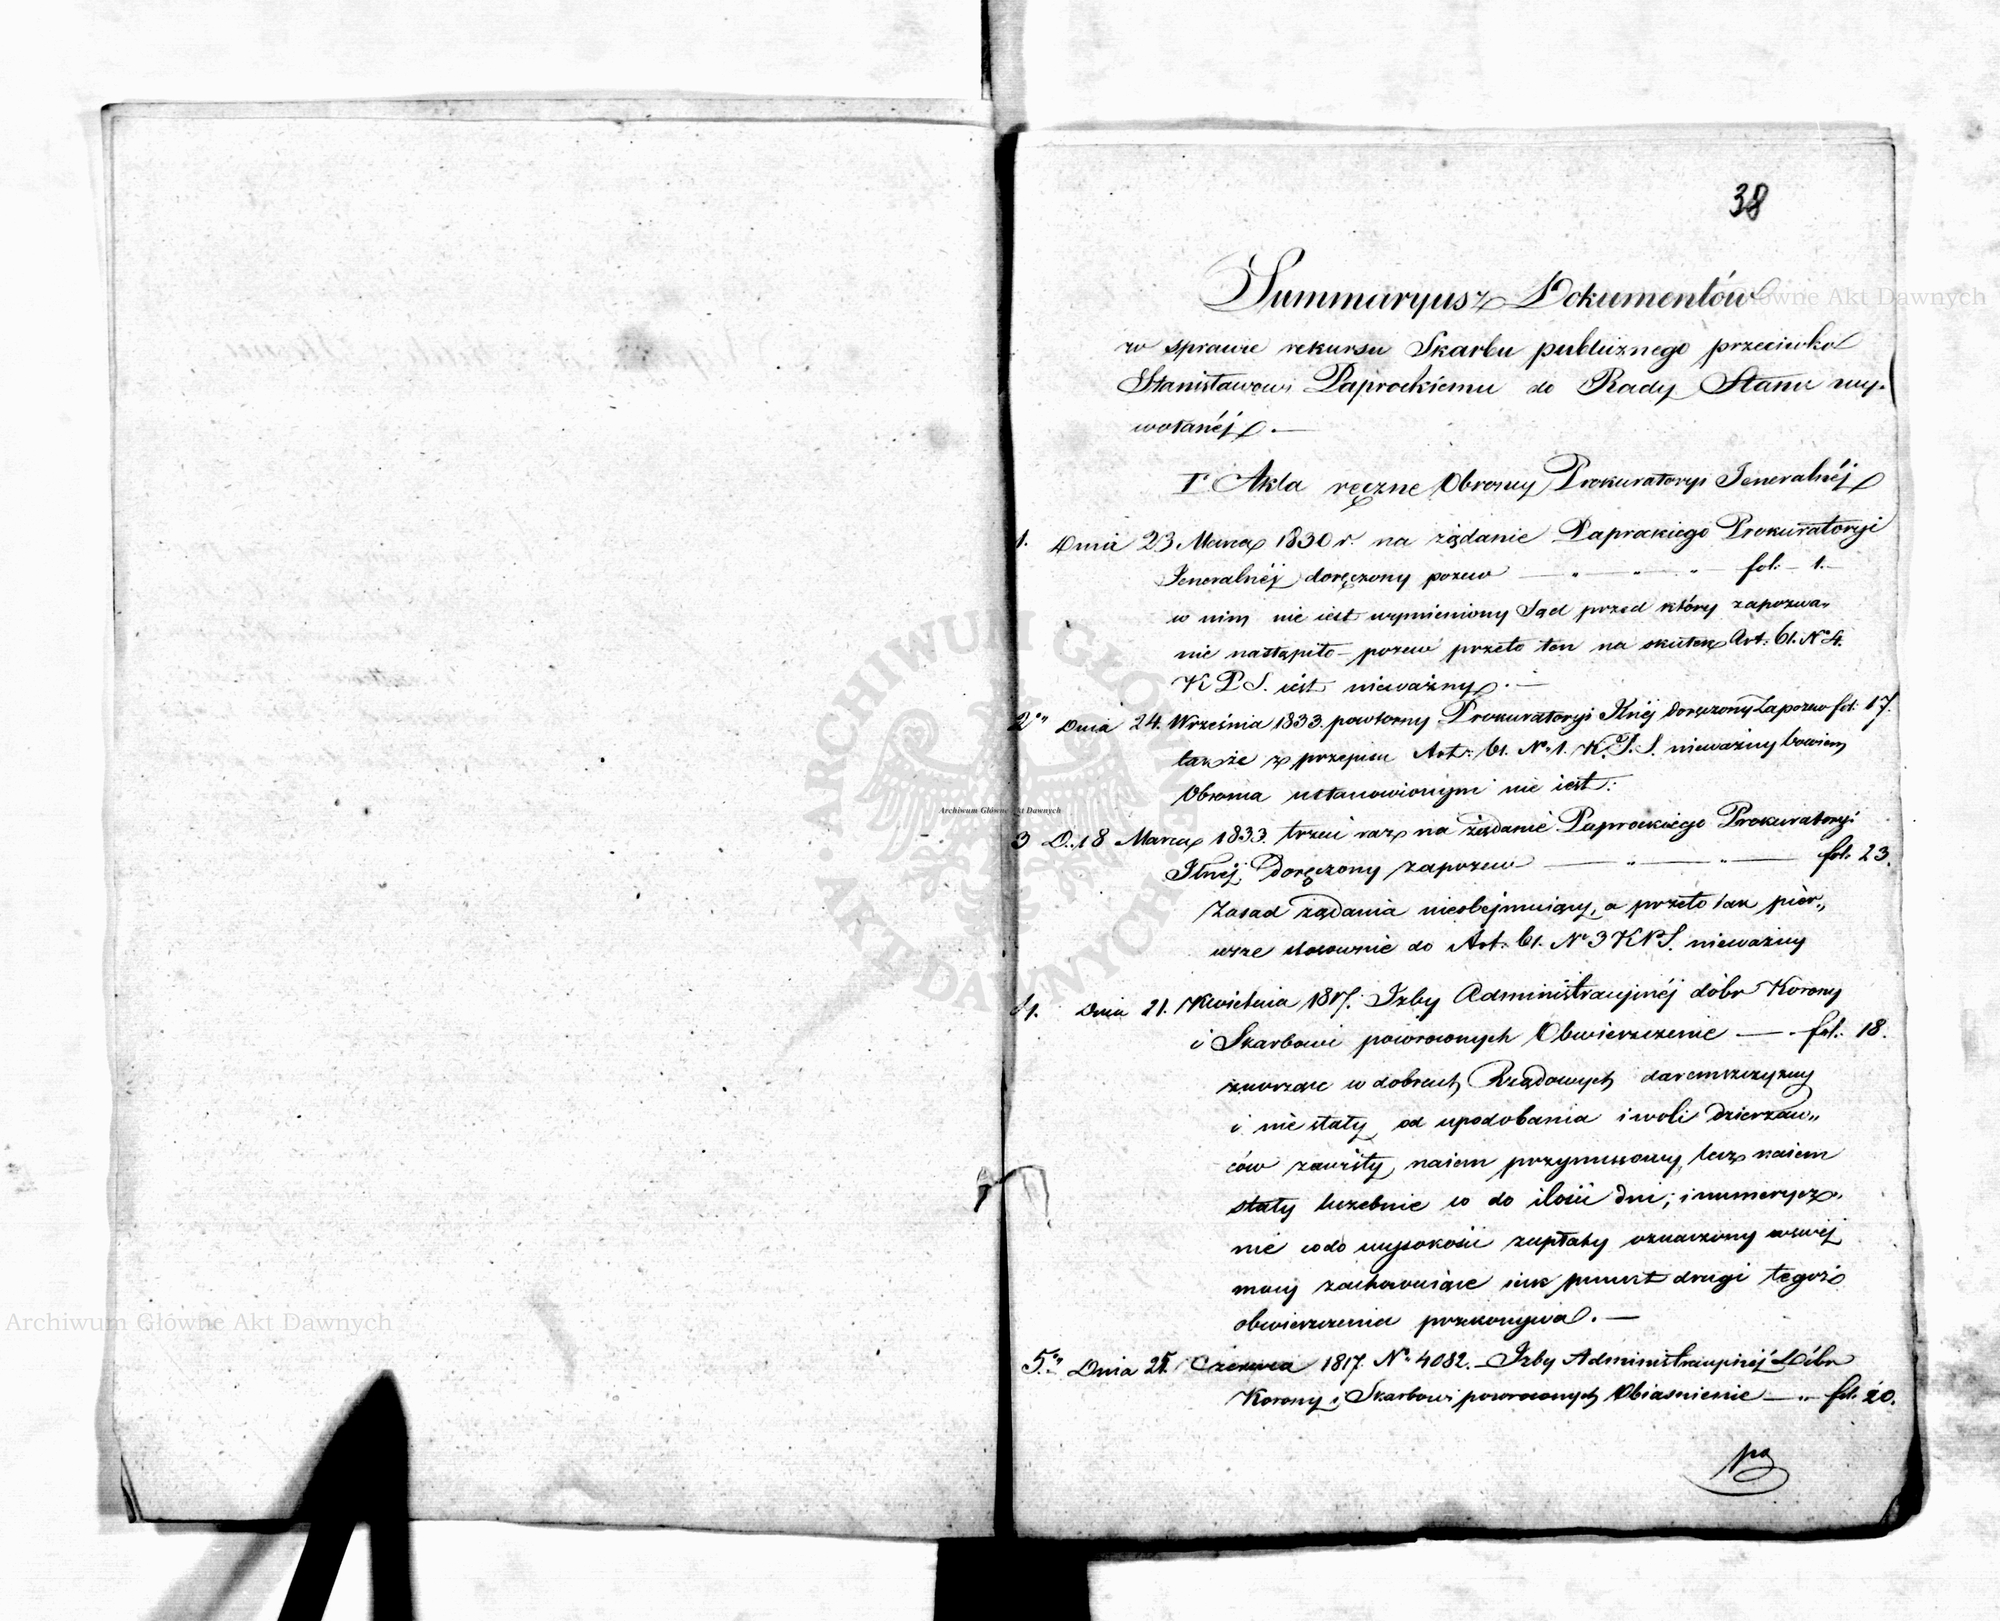 38
Summaryusz Dokumentów
w sprawie rekursu Skarbu publicznego przeciwko
Stanisławowi Paprockiemu do Rady Stanu wy-
wołanéj. —
I. Akta ręczne Obrony Prokuratoryi Jeneralnéj
1. Dnia 23 Marca 1830 r. na żądanie Paprockiego Prokuratoryi
Jeneralnéj doręczony pozew — " — " — " fol: — 1. —
w nim nie iest wymieniony Sąd przed który zapozwa„
nie nastąpiło — pozew przeto ten na skutek Art. 61. No 4.
K P S. iest nieważny. —
2o" Dnia 24. Września 1833. powtorny Prokuratoryi Jlnéj doręczony Zapozew fol: 17.
także z przepisu Art: 61. No 1. K. P. S. nieważny bowiem
Obronia ustanowionym nie iest:
3 D. 18 Marca 1833. trzeci raz na żądanie Paprockiego Prokuratoryi
Jlnéj, Doręczony zapozew — " — " — fol. 23.
Zasad żądania nieobejmuiący, a przeto iak piér„
wsze stosownie do Art. 61. No 3 KPS. nieważny
4. Dnia 21. Kwietnia 1817. Izby Administracyjnéj dóbr Korony
i Skarbowi powroconych Obwieszczenie — . fol: 18.
znoszące w dobrach Rządowych daremszczyzny
i nie stały, od upodobania i woli dzierzaw„
ców zawisły, naiem przymusowy, lecz naiem
stały liczebnie co do ilości dni; i numerycz„
nie codo wysokości zapłaty oznaczony wswéj
mocy zachowuiące iak punkt drugi tegoż
obwieszczenia przekonywa. —
5.o" Dnia 25. Czerwca 1817. No 4082. — Izby Administracyjnéj Dóbr
Korony i Skarbowi powroconych Obiasnienie — " fol. 20.
po
Archiwum Główne Akt Dawnych
Archiwum Główne Akt Dawnych
Główne Akt Dawnych
ARCHIWUM GŁÓWNE • AKT DAWNYCH •